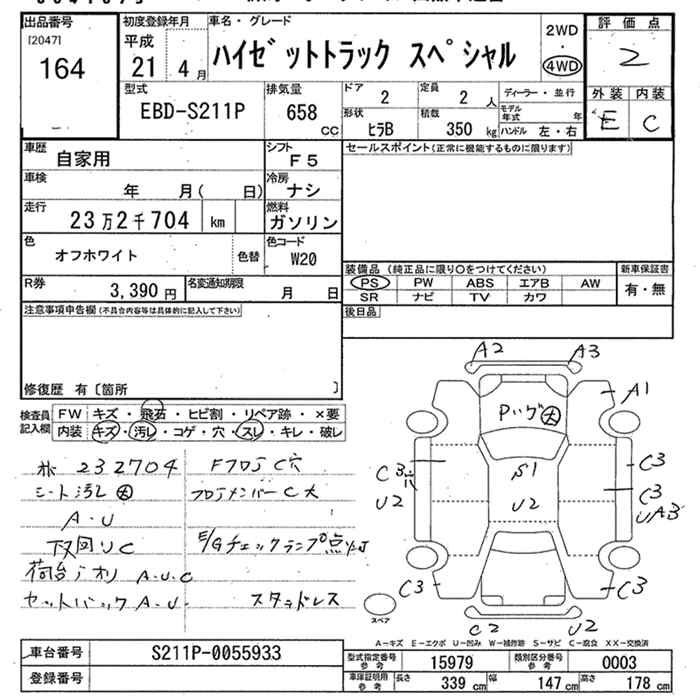 出品番号
[2047]
164
初度登録年月
平成
21年 4月
車名・グレード
ハイゼットトラック スペシャル
2WD
・
4WD
評価点
2
外装 内装
E C
型式
EBD-S211P
排気量
658 cc
ドア 2
定員 2人
形状 ヒラB
積載 350 kg
ディーラー・並行
モデル年式 年
ハンドル 左・右
車歴 自家用
シフト F5
車検 年 月( 日)
冷房 ナシ
走行 23万2千704 km
燃料 ガソリン
色 オフホワイト 色替
色コード W20
R券 3,390円
名変通知期限 月 日
セールスポイント(正常に機能するものに限ります)
装備品 (純正品に限り○をつけてください)
PS PW ABS エアB AW
SR ナビ TV カワ
新車保証書
有・無
後日品
注意事項申告欄(不具合内容等は具体的に記入して下さい)
修復歴 有〔箇所 〕
検査員記入欄
FW キズ・飛石・ヒビ割・リペア跡・×要
内装 キズ・汚レ・コゲ・穴・スレ・キレ・破レ
232704
シート汚レ大
A・U
下回リC
荷台アオリ A・U・C
セットバック A・U・
FフロアC穴
フロアメンバーC大
E/Gチェックランプ点灯
スタッドレス
A2 A3
A1
Pハゲ大
C3
U2
S1
U2
C3
C3
UA3
C3
C3
C2
U2
スペア
A-キズ E-エクボ U-凹み W-補修跡 S-サビ C-腐食 XX-交換済
車台番号 S211P-0055933
登録番号
型式指定番号参考 15979
類別区分番号参考 0003
車庫証明用参考 長さ 339 cm 幅 147 cm 高さ 178 cm